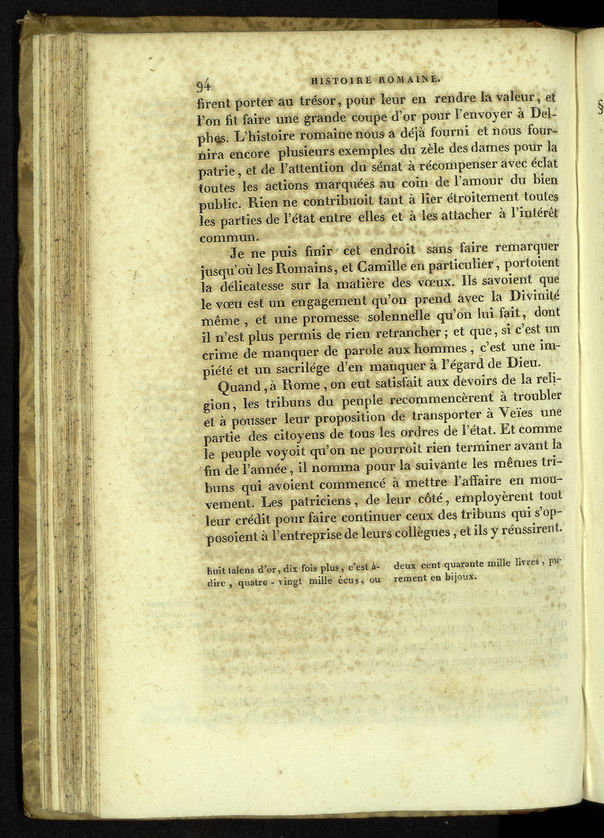 94 HISTOIRE ROMAINE.
firent porter au trésor, pour leur en rendre la valeur, et
l'on fit faire une grande coupe d'or pour l'envoyer à Del-
phes. L'histoire romaine nous a déjà fourni et nous four-
nira encore plusieurs exemples du zèle des dames pour la
patrie, et de l'attention du sénat à récompenser avec éclat
toutes les actions marquées au coin de l'amour du bien
public. Rien ne contribuoit tant à lier étroitement toutes
les parties de l'état entre elles et à les attacher à l'intérêt
commun.
Je ne puis finir cet endroit sans faire remarquer
jusqu'où les Romains, et Camille en particulier, portoient
la délicatesse sur la matière des vœux. Ils savoient que
le vœu est un engagement qu'on prend avec la Divinité
même, et une promesse solennelle qu'on lui fait, dont
il n'est plus permis de rien retrancher; et que, si c'est un
crime de manquer de parole aux hommes, c'est une im-
piété et un sacrilége d'en manquer à l'égard de Dieu.
Quand, à Rome, on eut satisfait aux devoirs de la reli-
gion, les tribuns du peuple recommencèrent à troubler
et à pousser leur proposition de transporter à Veïes une
partie des citoyens de tous les ordres de l'état. Et comme
le peuple voyoit qu'on ne pourroit rien terminer avant la
fin de l'année, il nomma pour la suivante les mêmes tri-
buns qui avoient commencé à mettre l'affaire en mou-
vement. Les patriciens, de leur côté, employèrent tout
leur crédit pour faire continuer ceux des tribuns qui s'op-
posoient à l'entreprise de leurs collègues, et ils y réussirent.
huit talens d'or, dix fois plus, c'est à-
dire, quatre-vingt mille écus, ou
deux cent quarante mille livres, pu-
rement en bijoux.
§